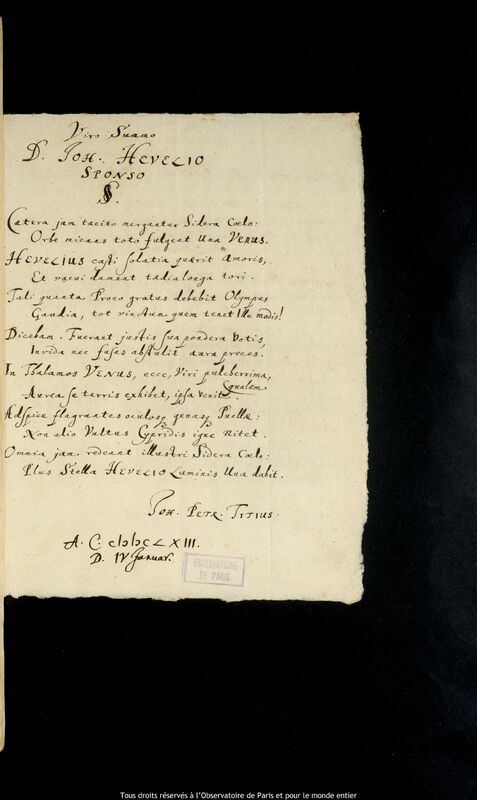 Viro Summo
D. IOH. HEVELIO
SPONSO
S.
Cætera jam tacito mergantur Sidera Cœlo:
Orbe micans toto fulgeat Una VENUS.
HEVELIUS casti solatia quærit Amoris,
Et vacui damnat tædia longa tori.
Tali quanta Proco gratus debebit Olympus
Gaudia, tot vinctum quem tenet Ille modis!
Dicebam. Fuerant justis sua pondera Votis,
Invida nec fusas abstulit aura preces.
In Thalamos VENUS, ecce, Viri pulcherrima, qualem
Aurea se terris exhibet, ipsa venit.
Adspice flagrantes oculosq; genasq; Puellæ:
Non alio Vultus Cypridis igne nitet.
Omnia jam redeant illustri Sidera Cœlo:
Plus Stella HEVELIO Luminis Una dabit.
Joh. Petr. Titius.
A. C. cIↄIↄcLXIII.
D. IV Januar.
OBSERVATOIRE
DE PARIS
Tous droits réservés à l'Observatoire de Paris et pour le monde entier